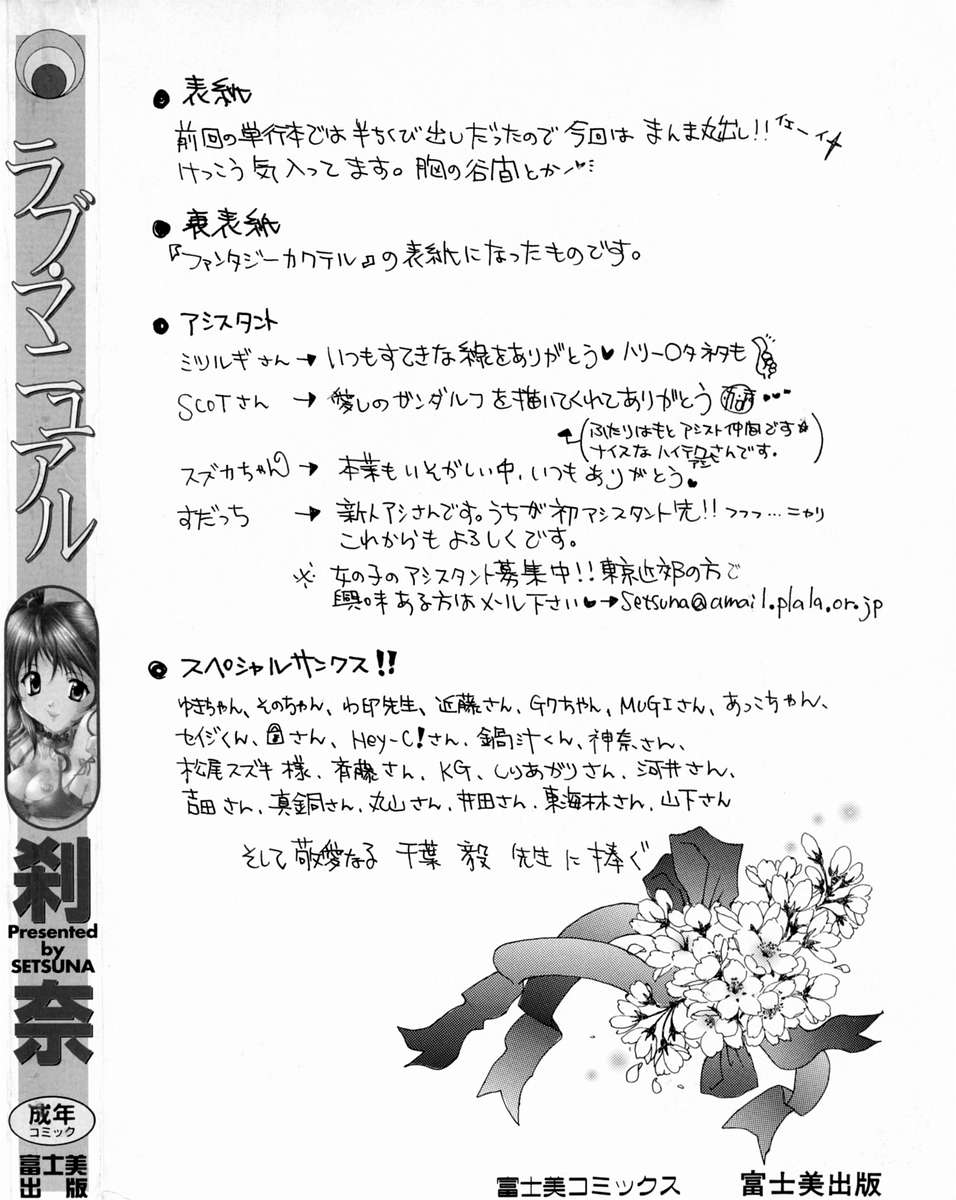 ラブ・マニュアル
刹奈
Presented
by
SETSUNA
成年
コミック
富士美
出版
● 表紙
前回の単行本では半ちくび出しだったので今回は まんま丸出し!! イエーイ
けっこう気入ってます。胸の谷間とか
● 裏表紙
『ファンタジーカクテル』の表紙になったものです。
● アシスタント
ミツルギさん → いつもすてきな線をありがとう♥ ハリー〇タネタも
SCOTさん → 愛しのガンダルフを描いてくれてありがとう
(ふたりはもとアシスト仲間です☆
ナイスなハイテクアシさんです。)
スズカちゃん → 本業もいそがしい中、いつもありがとう♥
すだっち → 新人アシさんです。うちが初アシスタント先!! フフフ…ニヤリ
これからもよろしくです。
※ 女の子のアシスタント募集中!! 東京近郊の方で
興味ある方はメール下さい♥→setsuna@amail.plala.or.jp
● スペシャルサンクス!!
ゆきちゃん、そのちゃん、わ印先生、近藤さん、Gクちゃん、MUGIさん、あっこちゃん、
セイジくん、さん、Hey-C!さん、鍋汁くん、神奈さん、
松尾スズキ様、斉藤さん、KG、しりあがりさん、河井さん、
吉田さん、真銅さん、丸山さん、井田さん、東海林さん、山下さん
そして敬愛なる 千葉 毅 先生に捧ぐ
富士美コミックス 富士美出版